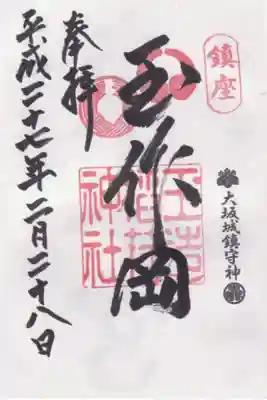 鎮座
大坂城鎮守神
玉作岡
玉造
稲荷
神社
奉拝
平成二十七年二月二十八日